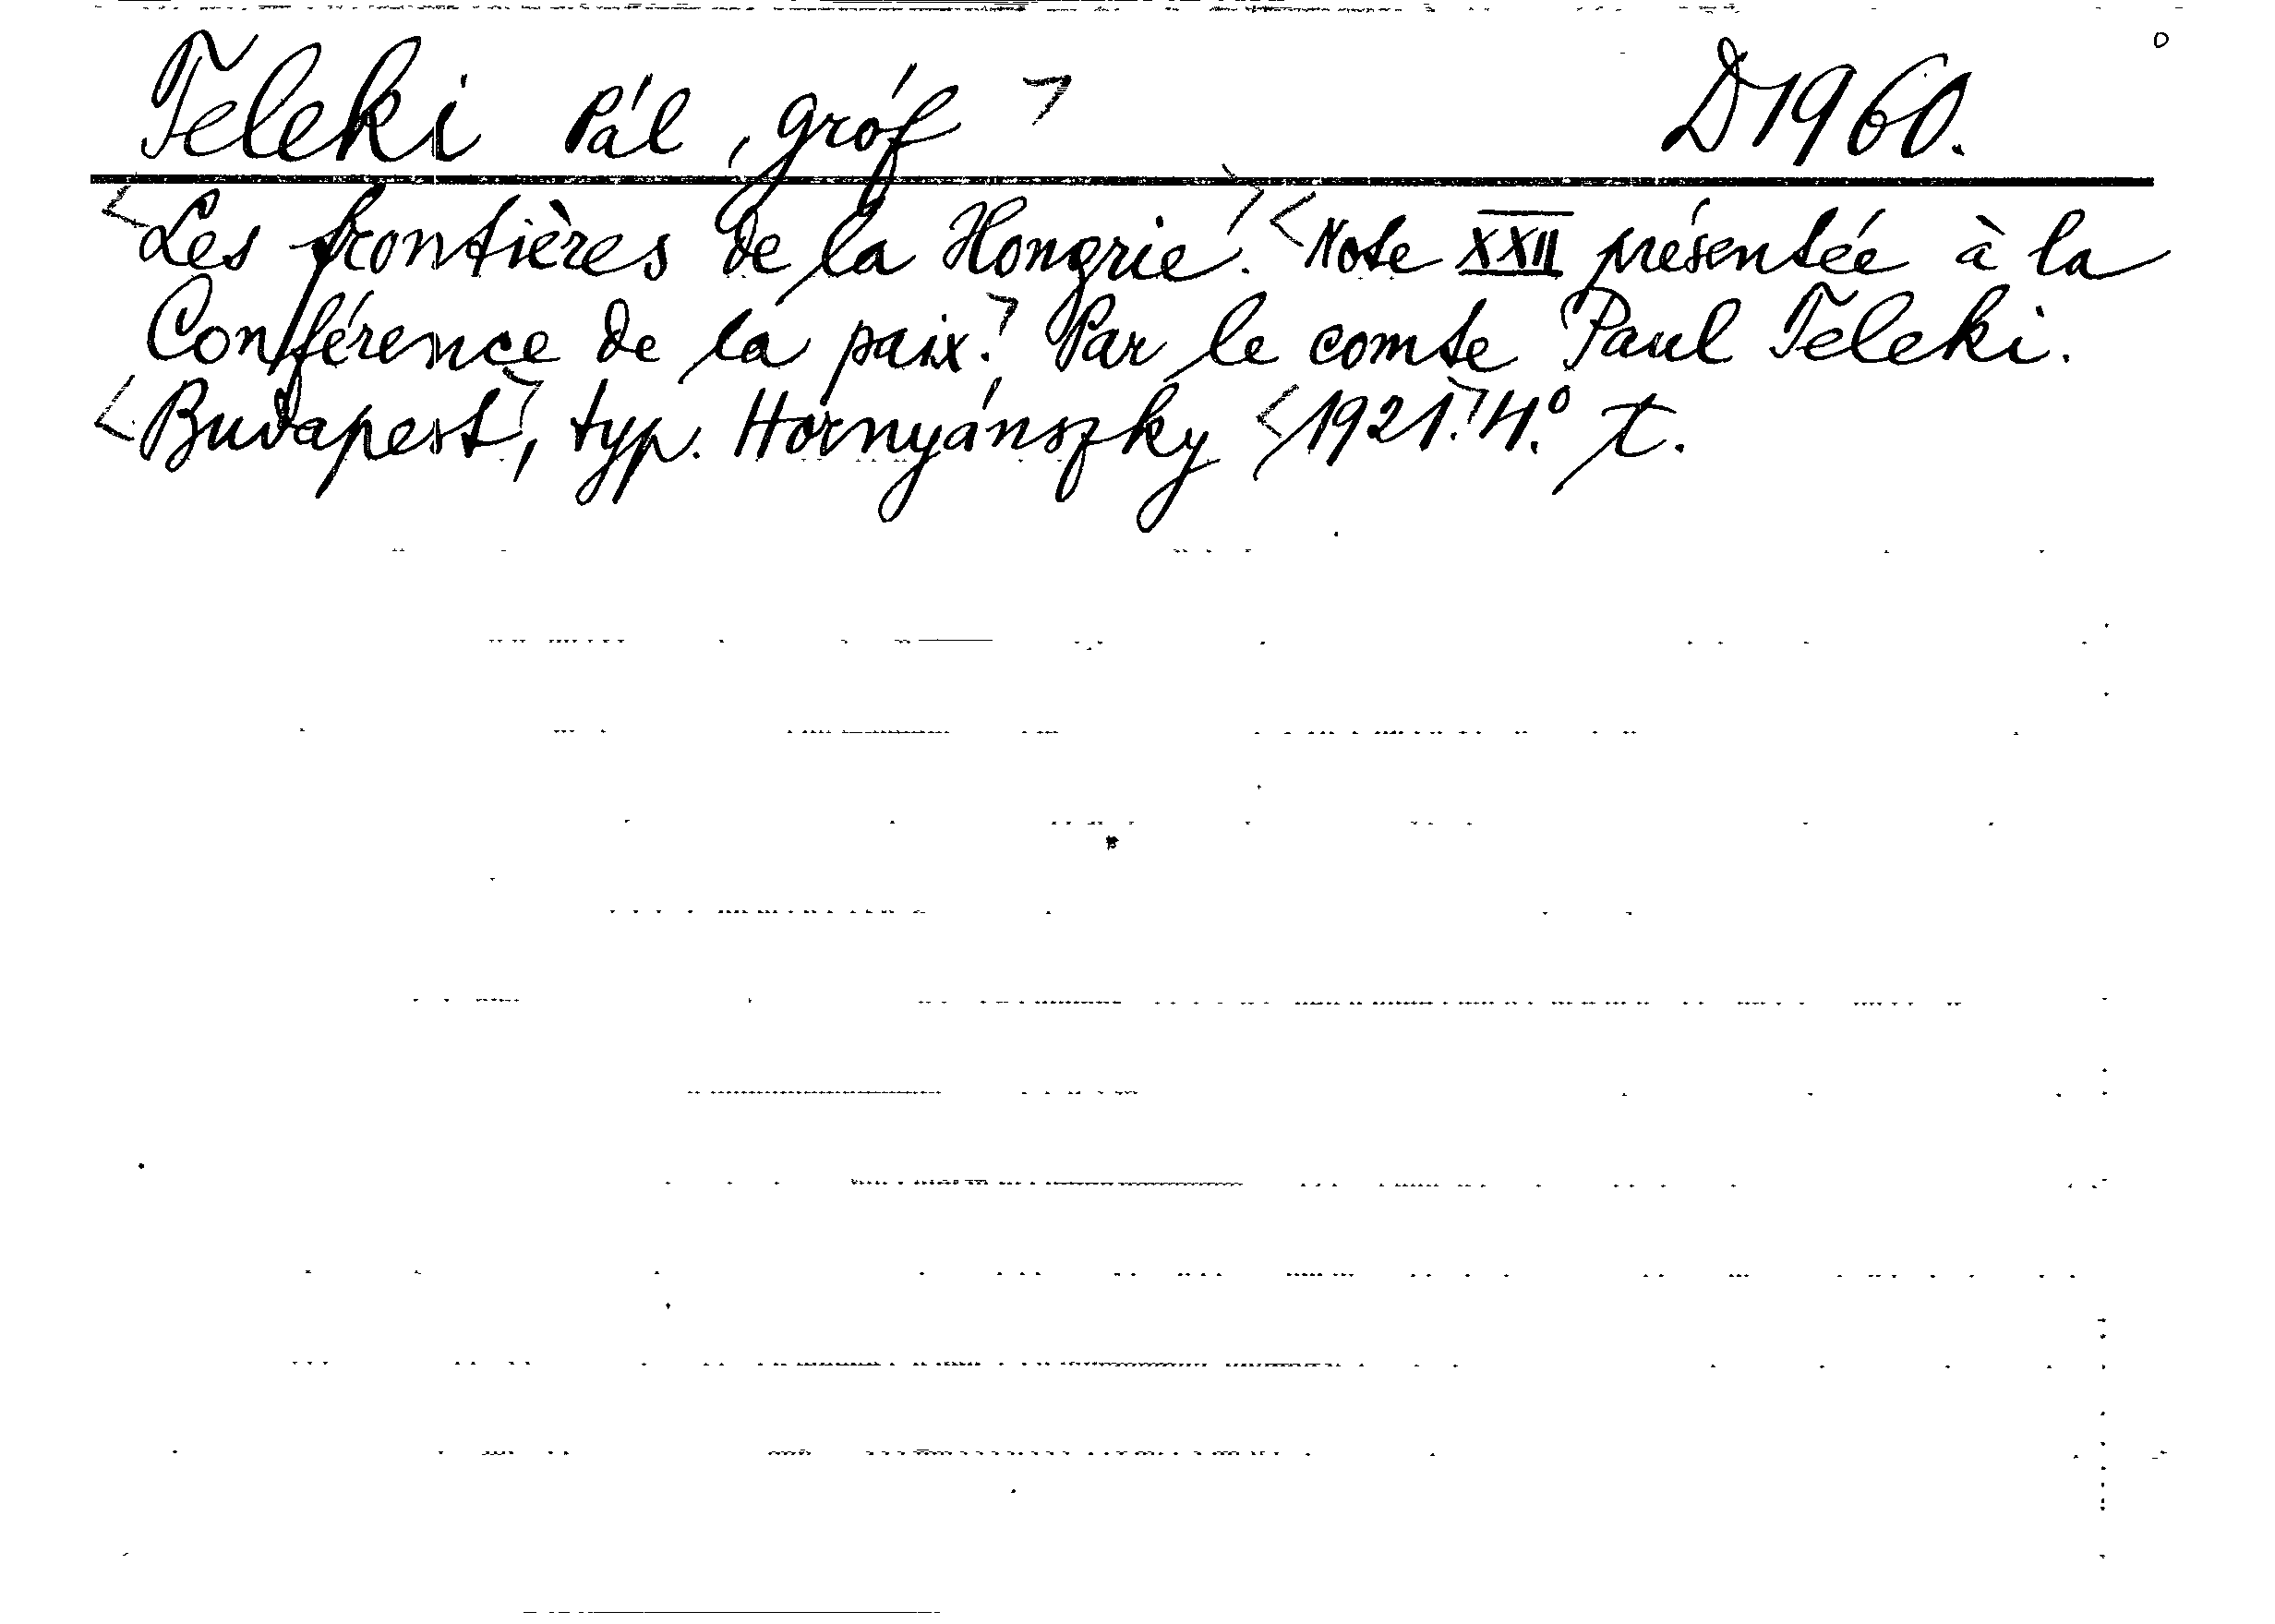 Teleki Pál, gróf D1960.
Les frontières de la Hongrie. Note XXII présentée à la
Conférence de la paix. Par le comte Paul Teleki.
Budapest, typ. Hornyánszky 1921. 4.° t.